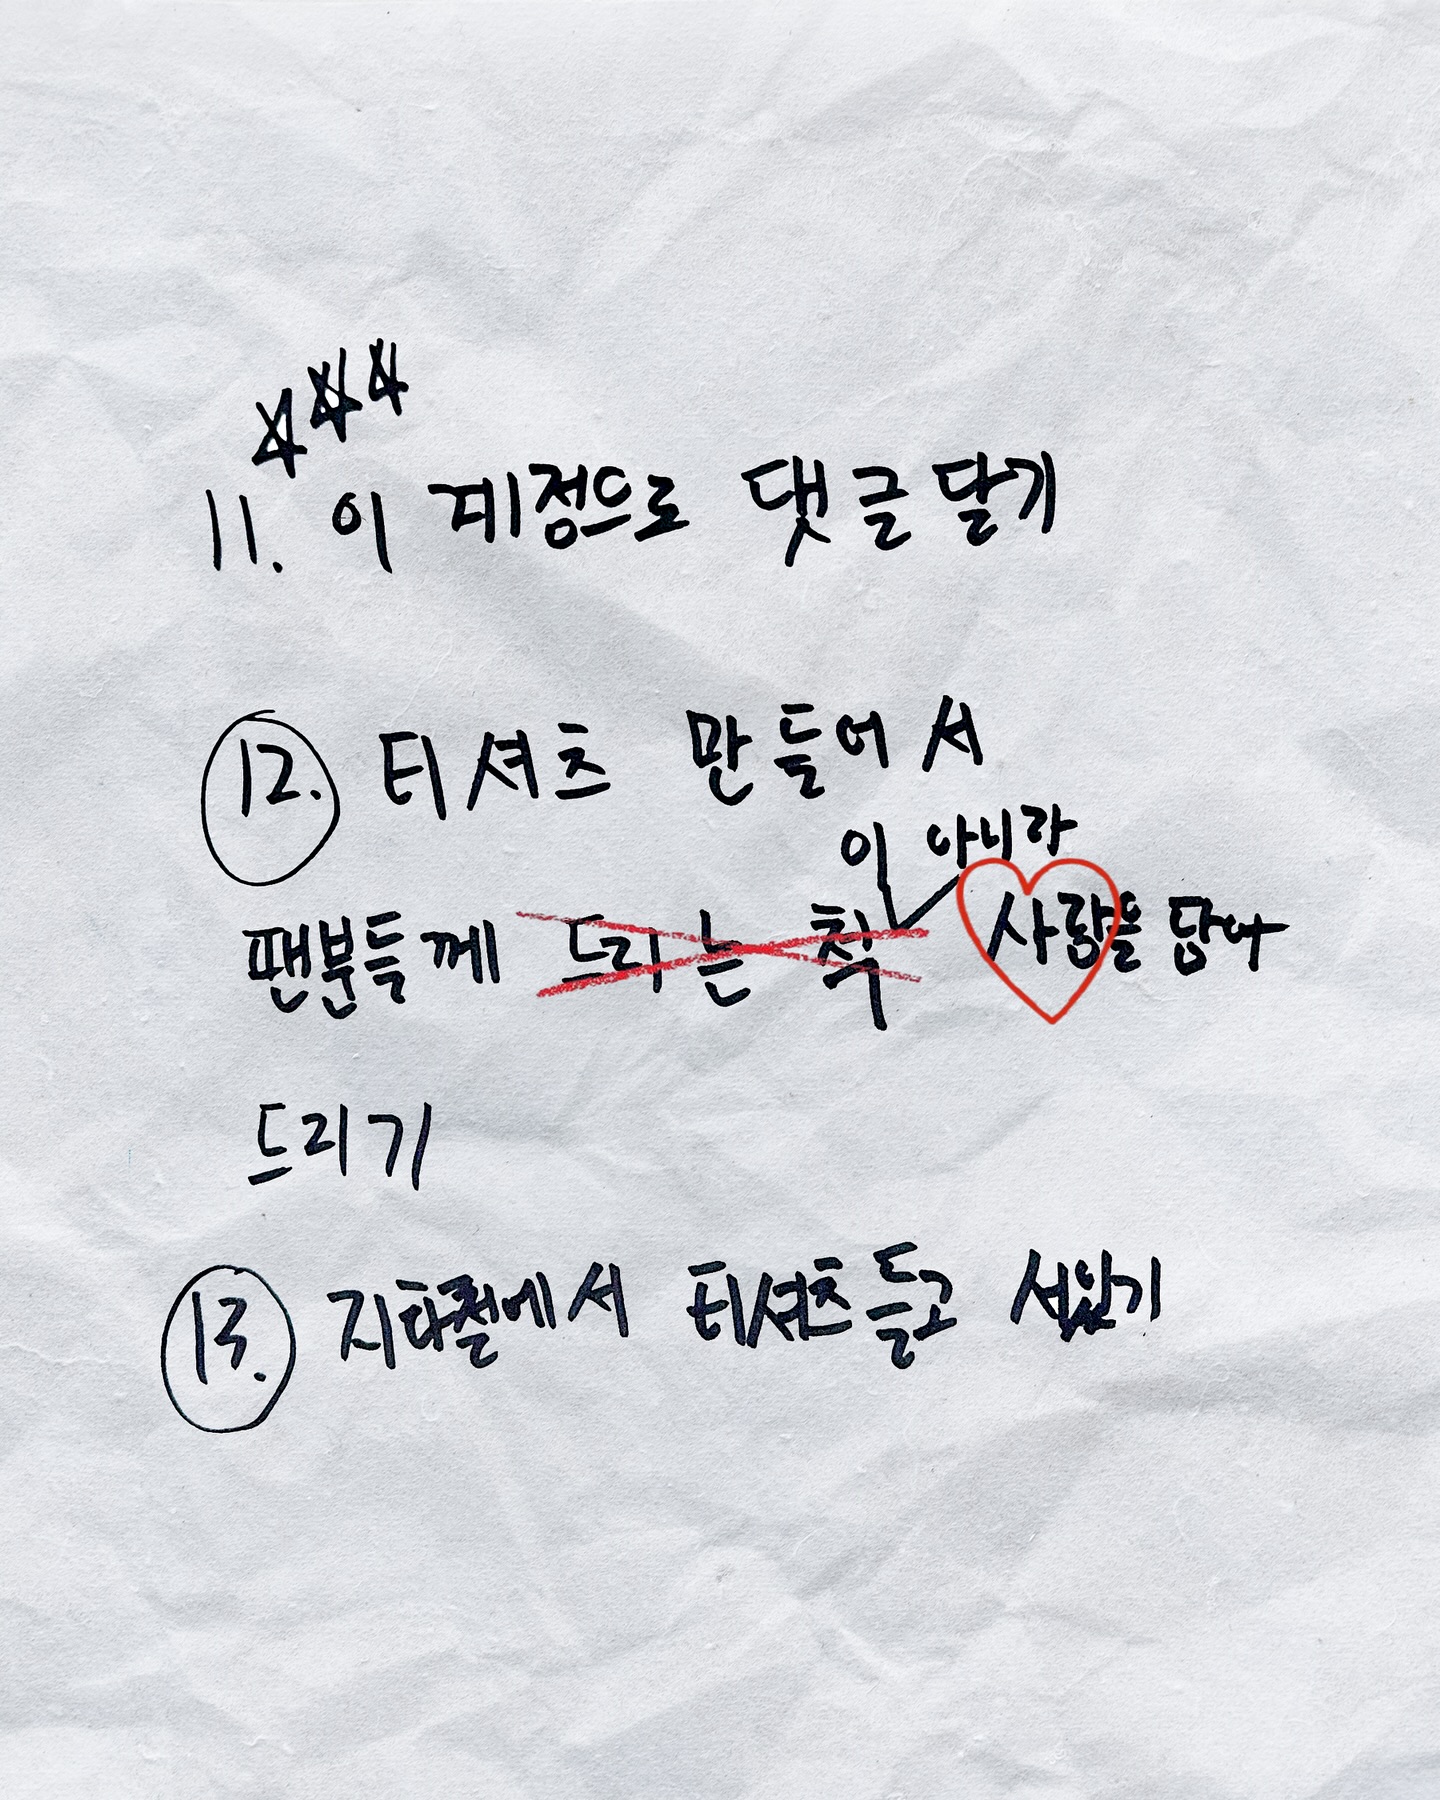 11. 이 계정으로 댓글 달기
12. 티셔츠 만들어서
이 아니라
팬분들께 드리는 척 사랑을 담아
드리기
13. 지하철에서 티셔츠 들고 서있기